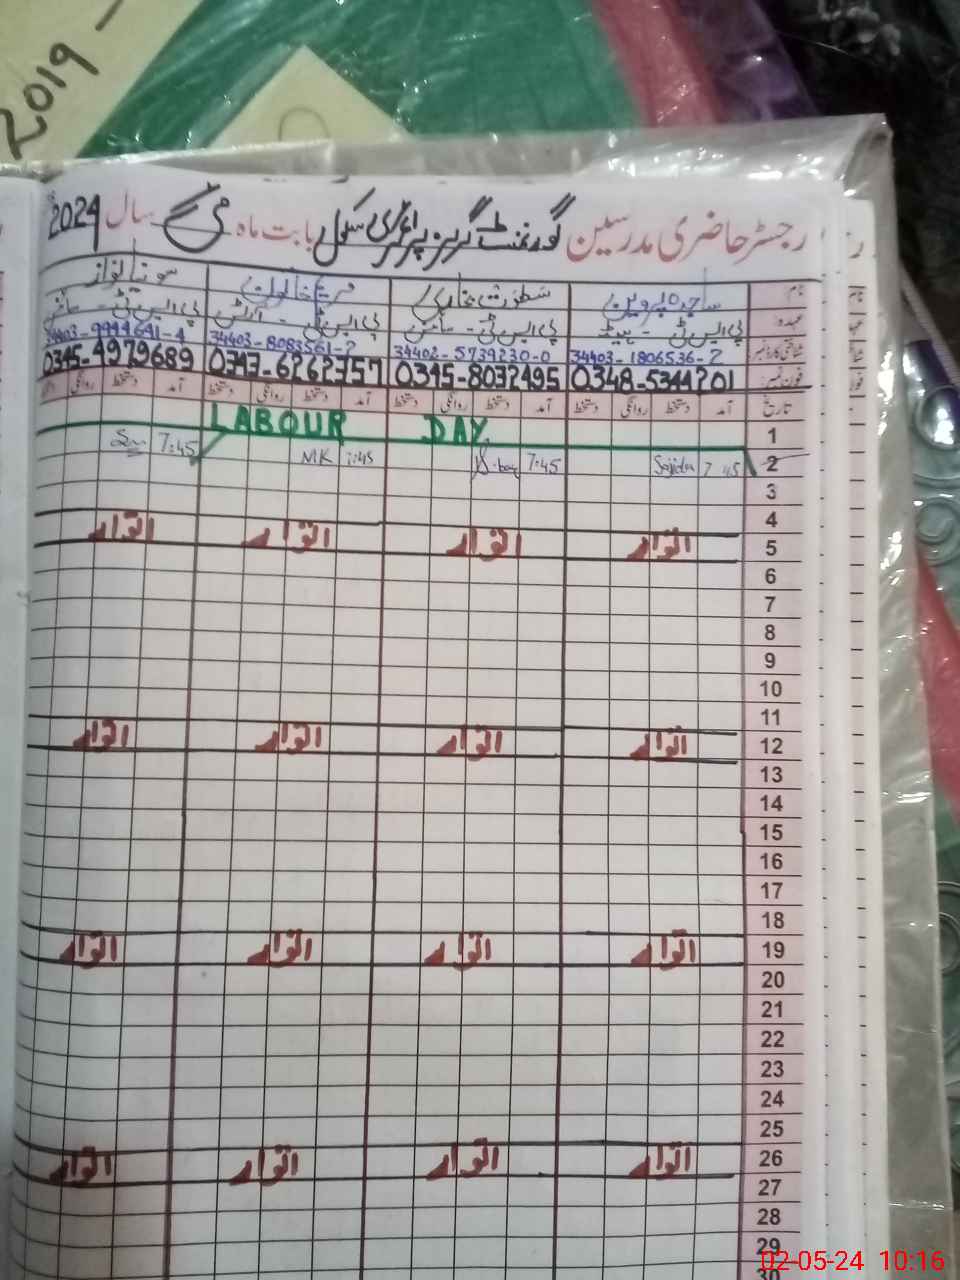 2019 -
رجسٹر حاضری مدرسین گورنمنٹ گرلز پرائمری سکول بابت ماہ مئی سال 2024
نام ساجدہ پروین سونیا نواز
عہدہ پی ایس ٹی - ہیڈ پی ایس ٹی - سائنس پی ایس ٹی - آرٹس پی ایس ٹی - سائنس
شناختی کارڈ نمبر 34403-1806536-2 34402-5739230-0 34403-8083561-2 34403-9944641-4
فون نمبر 0348-5344201 0345-8032495 0343-6262757 0345-4979689
تاریخ آمد دستخط روانگی دستخط آمد دستخط روانگی دستخط آمد دستخط روانگی دستخط آمد دستخط روانگی
1 LABOUR DAY
2 7:45 Sajida 7:45 7:45 MK 7:45
3
4
5 اتوار اتوار اتوار اتوار
6
7
8
9
10
11
12 اتوار اتوار اتوار اتوار
13
14
15
16
17
18
19 اتوار اتوار اتوار اتوار
20
21
22
23
24
25
26 اتوار اتوار اتوار اتوار
27
28
29
30
02-05-24 10:16